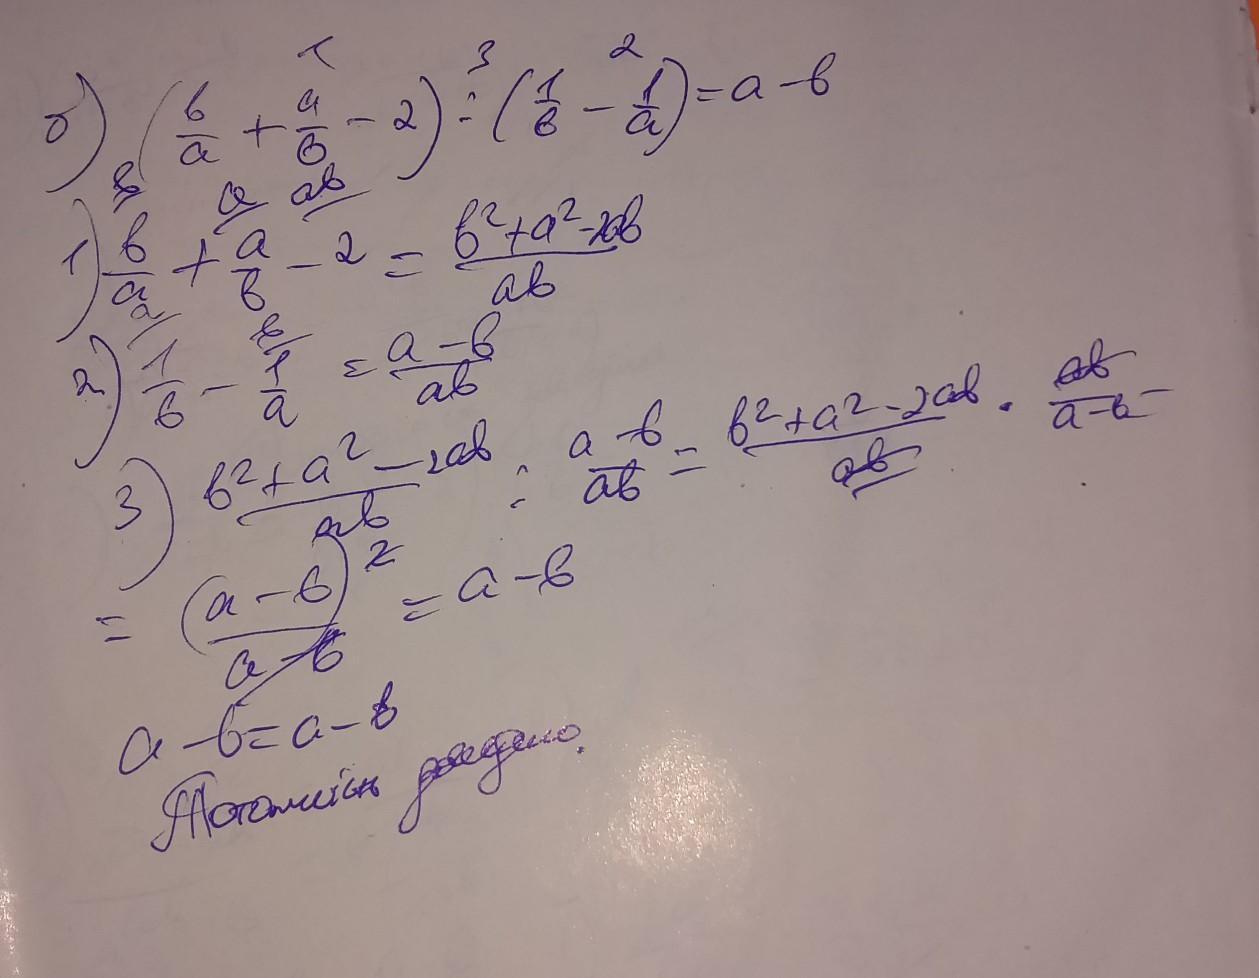 б) (b/a + a/b - 2) : (1/b - 1/a) = a - b
1) b/a + a/b - 2 = (b² + a² - 2ab)/ab
2) 1/b - 1/a = (a - b)/ab
3) (b² + a² - 2ab)/ab : (a - b)/ab = (b² + a² - 2ab)/ab · ab/(a - b)
= (a - b)²/(a - b) = a - b
a - b = a - b
Тотожність доведено.